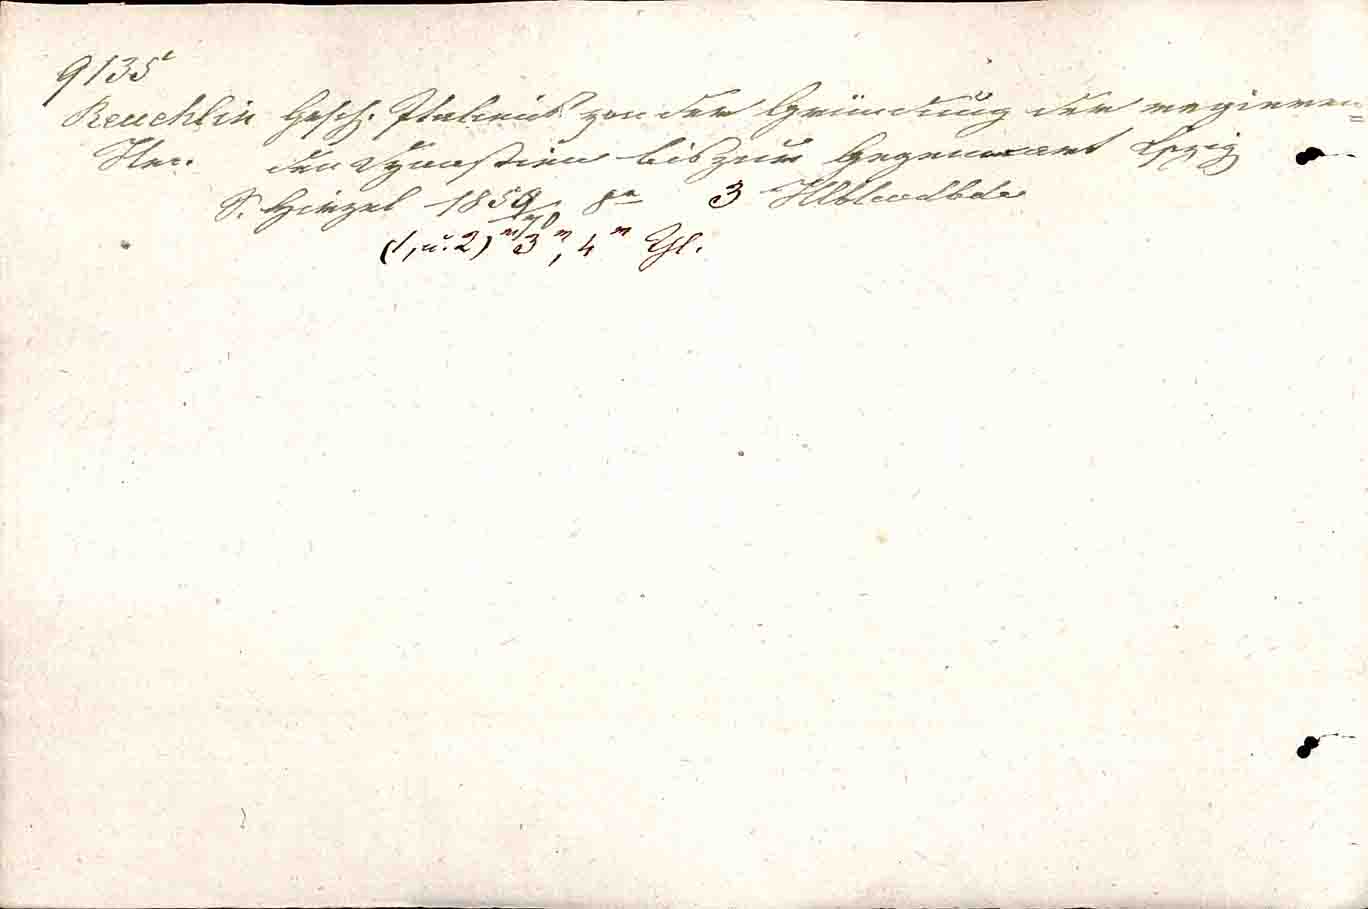 9135
Reuchlin Gesch. Italiens von der Gründung der regieren=
Her. den Dynastien bis zur Gegenwart Lpzig
S. Hirzel 1859 8° 3 Hlblwdbde
/70
(1, u. 2) 3, 4 Thl.